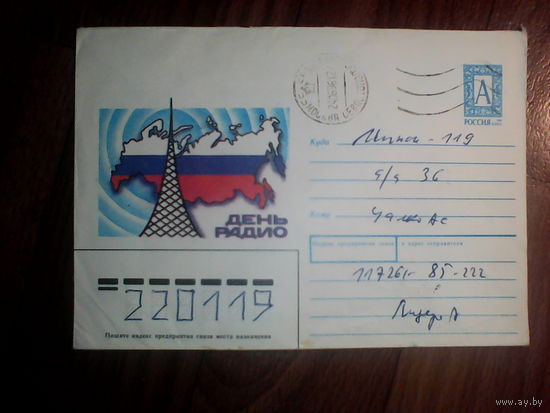 А
РОССИЯ
Куда
Минск - 119
а/я 36
Кому
Чалко АС
Индекс предприятия связи и адрес отправителя
117261 - 85-222
ДЕНЬ
РАДИО
220119
Пишите индекс предприятия связи места назначения
www.ay.by